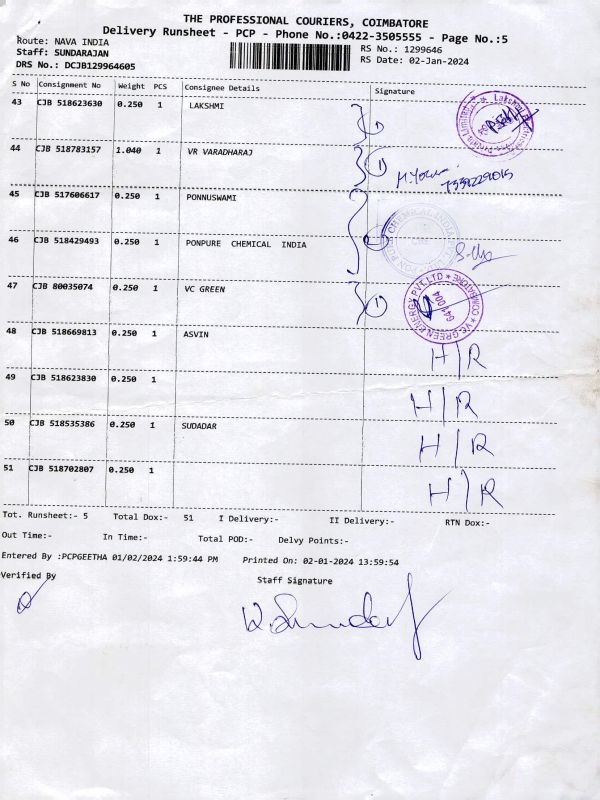 THE PROFESSIONAL COURIERS, COIMBATORE
Delivery Runsheet - PCP - Phone No.:0422-3505555 - Page No.:5
Route: NAVA INDIA
RS No.: 1299646
Staff: SUNDARAJAN
RS Date: 02-Jan-2024
DRS No.: DCJB129964605
S No Consignment No Weight PCS Consignee Details Signature
43 CJB 518623630 0.250 1 LAKSHMI
44 CJB 518783157 1.040 1 VR VARADHARAJ
45 CJB 517606617 0.250 1 PONNUSWAMI
46 CJB 518429493 0.250 1 PONPURE CHEMICAL INDIA
47 CJB 80035074 0.250 1 VC GREEN
VC GREEN ENERGY PVT.LTD COIMBATORE 641 004
48 CJB 518669813 0.250 1 ASVIN H/R
49 CJB 518623830 0.250 1 H/R
50 CJB 518535386 0.250 1 SUDADAR H/R
51 CJB 518702807 0.250 1 H/R
Tot. Runsheet:- 5 Total Dox:- 51 I Delivery:- II Delivery:- RTN Dox:-
Out Time:- In Time:- Total POD:- Delvy Points:-
Entered By :PCPGEETHA 01/02/2024 1:59:44 PM Printed On: 02-01-2024 13:59:54
Verified By Staff Signature